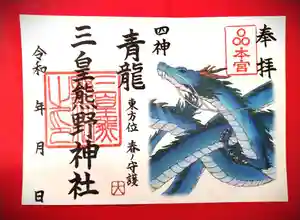 奉拝
本宮
四神
青龍
東方位 春ノ守護
三皇熊野神社
令和 年 月 日